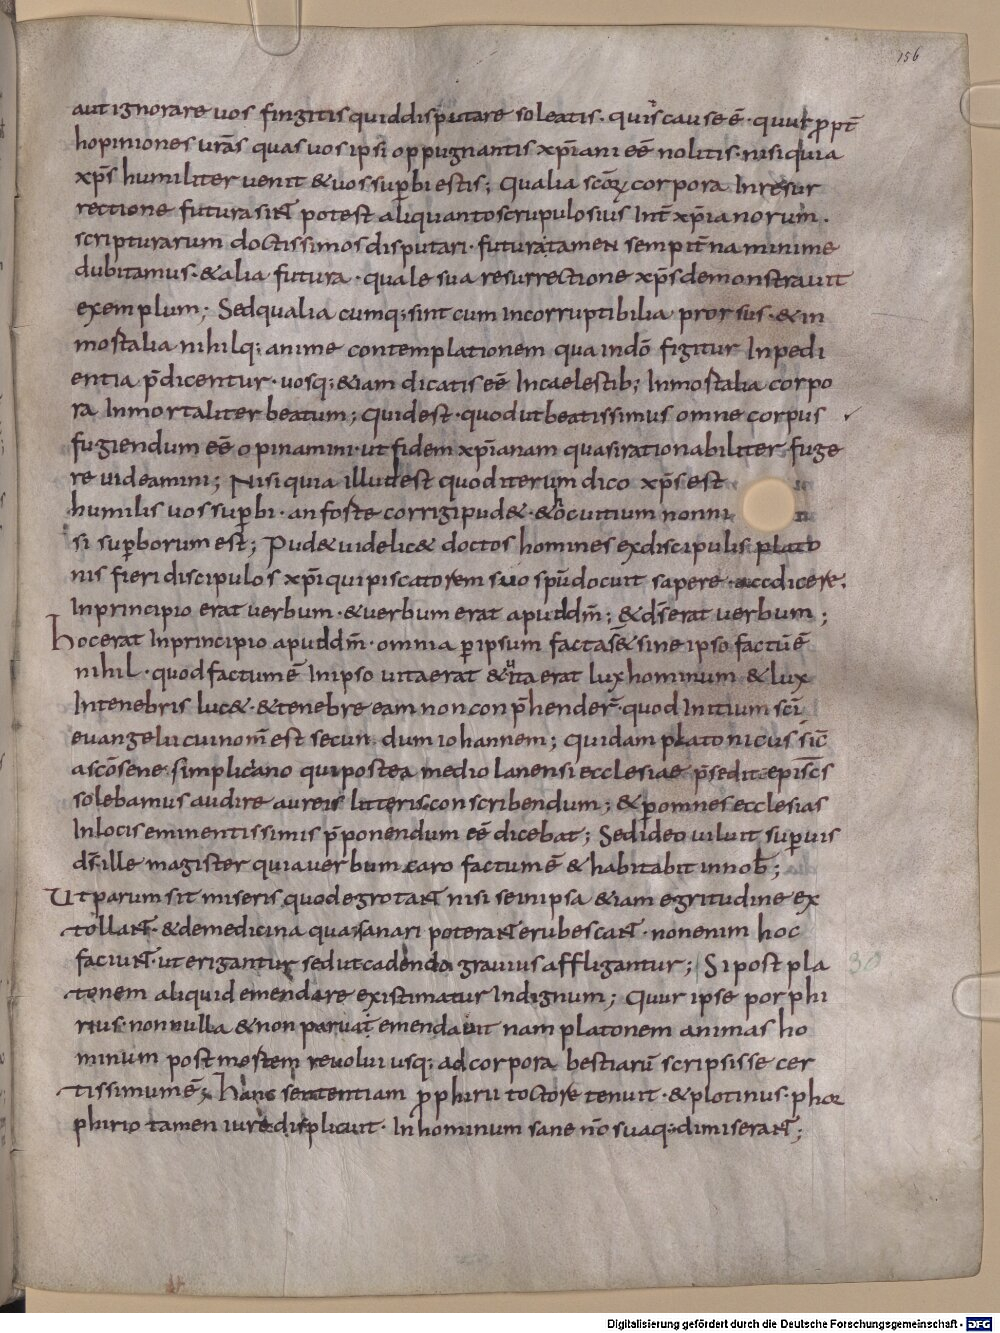 156
aut ignorare uos fingitis quid disputare soleatis. quis cause ē. quur ꝓpt̄
hopiniones ur̄as quas uos ipsi oppugnantis xp̄iani eē nolitis. nisi quia
xp̄s humiliter uenit & uos sup̄bi estis; Qualia sc̄oꝝ corpora In resur
rectione futura sint potest aliquanto scrupulosius Int̄ xp̄ianorum.
scripturarum doctissimos disputari. futura tamen sempit̄na minime
dubitamus. & alia futura. quale sua resurrectione xp̄s demonstrauit
exemplum; Sed qualia cumq; sint cum Incorruptibilia prorsus. & in
mortalia nihilq; anime contemplationem qua in dō figitur Inpedi
entia p̄dicentur. uosq; &iam dicatis eē In caelestib; Inmortalia corpo
ra Inmortaliter beatum; Quid est. quod ut beatissimus omne corpus
fugiendum eē opinamini. ut fidem xp̄ianam quasi rationabiliter fuge
re uideamini; Nisi quia illud est quod iterum dico xp̄s est
humilis uos sup̄bi. an forte corrigi pud&. & hoc uitium non ni
si sup̄borum est; Pud& uidelic& doctos homines ex discipulis plato
nis fieri discipulos xp̄i qui piscatorem suo sp̄u docuit sapere. ac dicere.
In principio erat uerbum. & uerbum erat apud dm̄; & ds̄ erat uerbum;
Hoc erat In principio apud dm̄. omnia p̄ ipsum facta s̄ & sine ipso factū ē
nihil. quod factum ē In ipso uita erat & uita erat lux hominum & lux
In tenebris luc&. & tenebre eam non conp̄hender̄. quod Initium sc̄i
euangelii cui nom̄ est secundum iohannem; Quidam platonicus sic̄
a sc̄o sene simpliciano qui postea mediolanensi ecclesiae p̄sedit epīscs
solebamus audire aureis litteris conscribendum; & p̄ omnes ecclesias
In locis eminentissimis p̄ponendum eē dicebat; Sed ideo uiluit sup̄uis
ds̄ ille magister quia uerbum caro factum ē & habitabit in nob̄;
Ut parum sit miseris quod egrotant nisi se in ipsa &iam egritudine ex
tollant. & de medicina qua sanari poterant erubescant. non enim hoc
faciunt. ut erigantur sed ut cadendo grauius affligantur; Si post pla
30
tonem aliquid emendare existimatur Indignum; Quur ipse porphi
rius. nonnulla & non parua emendauit nam platonem animas ho
minum post mortem reuolui usq; ad corpora bestiarū scripsisse cer
tissimum ē; Hanc sententiam ꝓphirii toctore tenuit. & plotinus. phor
phirio tamen iure displicuit. In hominum sane nō suaq; dimiserant;
Digitalisierung gefördert durch die Deutsche Forschungsgemeinschaft - DFG